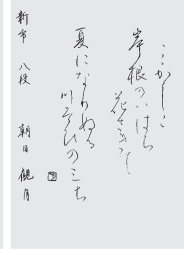 こゝかしこ
岸根のいはら
花さきて
夏になりぬる
川そひのみち
新市 八段 朝日 観月